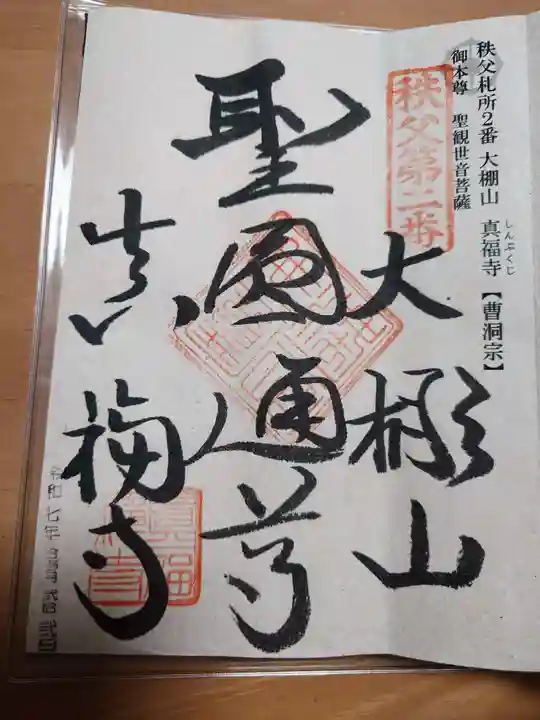 秩父札所2番 大棚山 真福寺【曹洞宗】
しんぷくじ
御本尊 聖観世音菩薩
秩父第二番
大棚山
聖圓通尊
真福寺
真福寺
令和七年